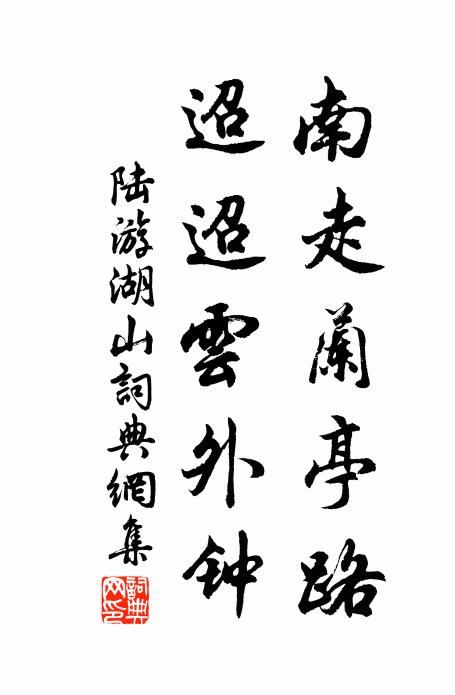 南走蘭亭路
迢迢雲外钟
陆游湖山詞典網集
詞典